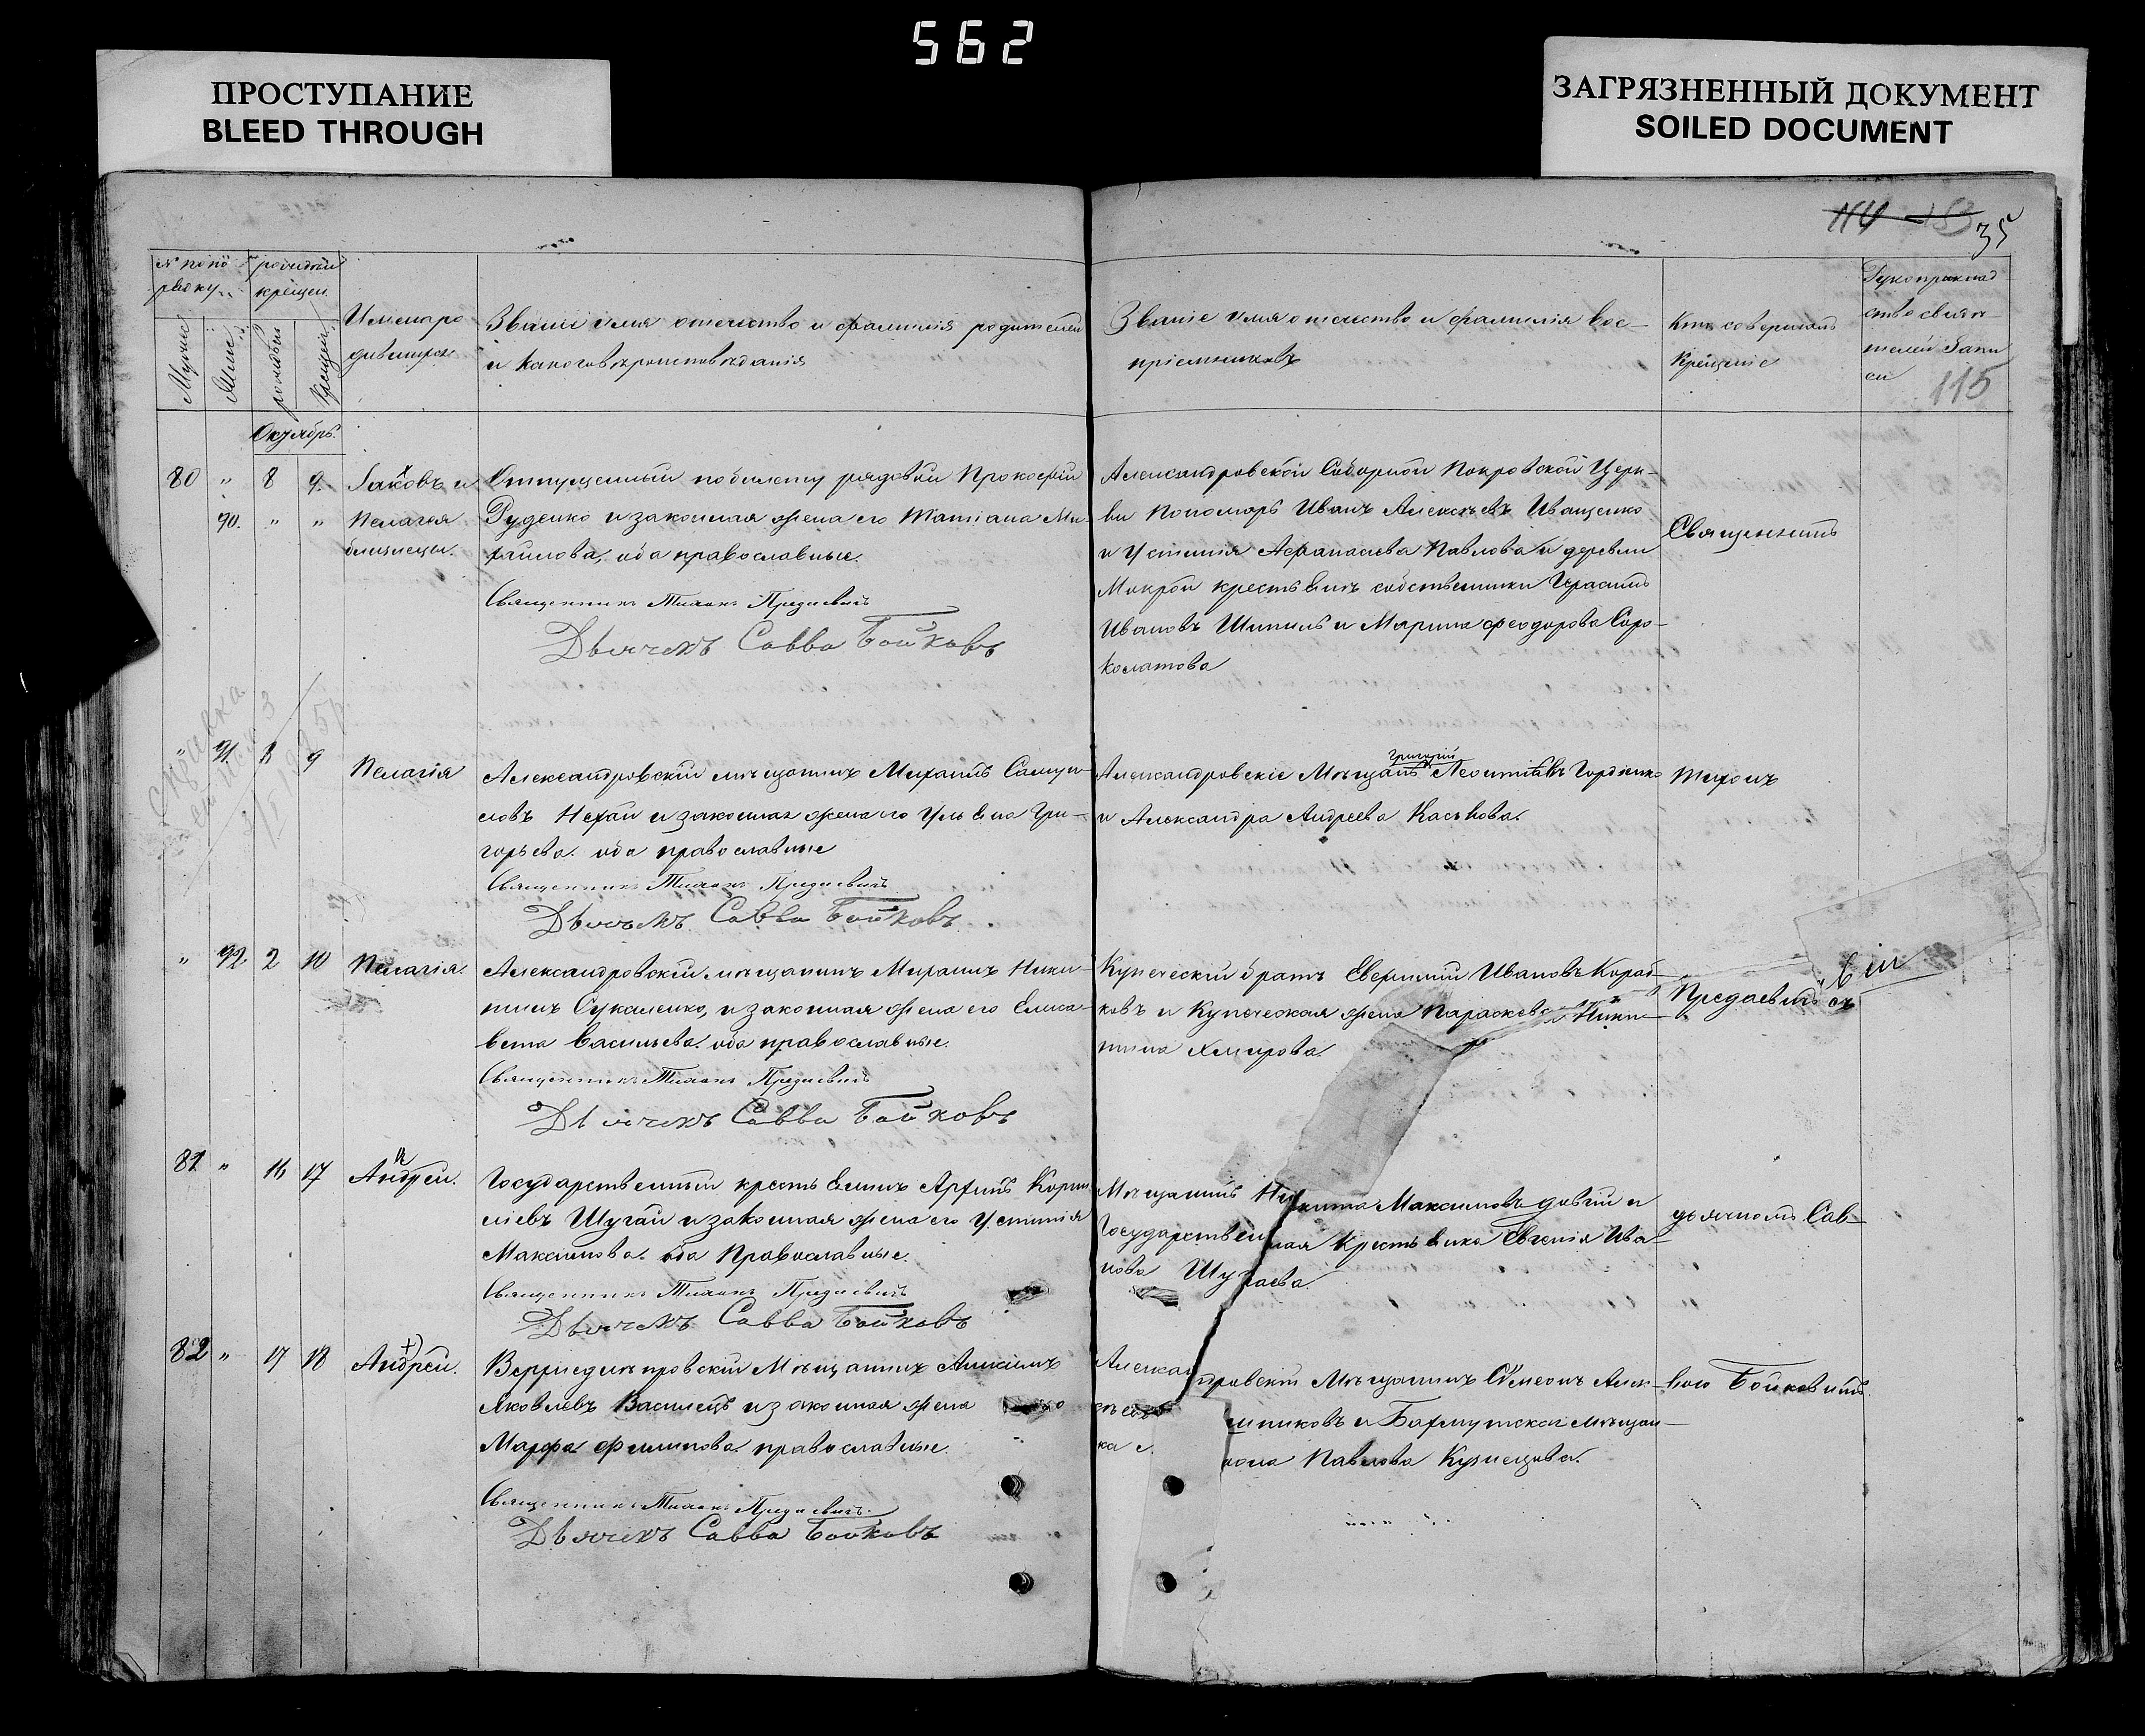 562
ПРОСТУПАНИЕ
BLEED THROUGH
ЗАГРЯЗНЕННЫЙ ДОКУМЕНТ
SOILED DOCUMENT
35
115
Званіе имя отечество и фамилія родителей
и какого вѣроисповѣданія
Званіе имя отечество и фамилія вос-
пріемниковъ
Кто совершалъ
крещеніе
Октябрь
80 " 8 9 Іаковъ и
90. " " Пелагея
близнецы.
Отпущенный по билету рядовой Прокофій
Руденко и законная жена его Татіана Ми-
хаилова, оба православные.
Священникъ Тихонъ Предаевичъ
Дьячекъ Савва Бойковъ
Александровской Соборной Покровской Церк-
ви Пономарь Иванъ Алексѣевъ Иващенко
и Устинія Афанасіева Павлова и деревни
Мокрой крестьянъ собственники Герасимъ
Ивановъ Шпиль и Марина Феодорова Соро-
колатова
Священникъ
" 91. 8 9 Пелагія
Александровскій мѣщанинъ Михаилъ Самуи-
ловъ Нехай и законная жена его Ульяна Гри-
горьева. оба православные
Священникъ Тихонъ Предаевичъ
Дьячекъ Савва Бойковъ
Григорій
Александровскіе Мѣщане Леонтіевъ Гордіенко
и Александра Андреева Каськова.
Тихонъ
" 92 2 10 Пелагія
Александровскій мѣщанинъ Михаилъ Ники-
тинъ Сукаленко, и законная жена его Елиса-
вета Васильева. оба православные.
Священникъ Тихонъ Предаевичъ
Дьячекъ Савва Бойковъ
Купеческій братъ Евгеній Ивановъ Кораб-
ковъ и Купеческая жена Параскева Ники-
тина Хмирова
Предаевичъ съ
81 " 16 17 Андрей.
Государственный крестьянинъ Архипъ Корни-
ліевъ Шугай и законная жена его Устинія
Максимова. оба Православные.
Священникъ Тихонъ Предаевичъ
Дьячекъ Савва Бойковъ
Мѣщанинъ Никита Максимовъ Довгій и
Государственная Крестьянка Евгенія Ива-
нова Шугаева
дьячкомъ Сав-
82 " 17 18 Андрей.
Верхнеднѣпровскій Мѣщанинъ
Яковлевъ Василецъ и законная жена его
Марфа Филипова православные.
Священникъ Тихонъ Предаевичъ
Дьячекъ Савва Бойковъ
Александровскій Мѣщанинъ Симеонъ Алек-
и Бахмутская мѣщан-
ка Павлова Кузнецова.
вою Бойковымъ.